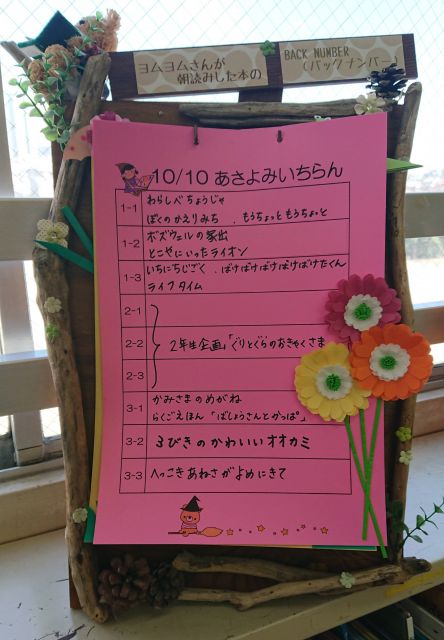 ヨムヨムさんが
朝読みした本の
BACK NUMBER
(バックナンバー)
10/10 あさよみいちらん
1-1 わらしべちょうじゃ
ぼくのかえりみち 、もうちょっともうちょっと
1-2 ボズウェルの家出
とこやにいったライオン
1-3 いちにちじごく 、ばけばけばけばけばけたくん
ライフタイム
2-1
2-2 2年生企画「ぐりとぐらのおきゃくさま
2-3
3-1 かみさまのめがね
らくごえほん「ばしょうさんとかっぱ」
3-2 3びきのかわいいオオカミ
3-3 へっこきあねさがよめにきて